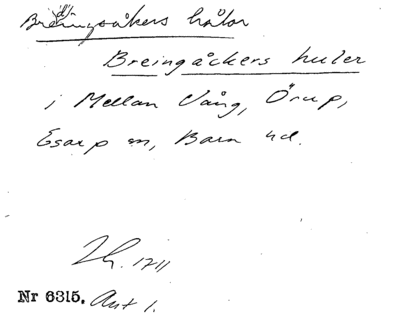 Breingåkers hålor
Breingåckers huler
i Mellan Vång, Örup,
Esarp sn, Bara hd.
Lh. 1711
Nr 6315. Ant 1.